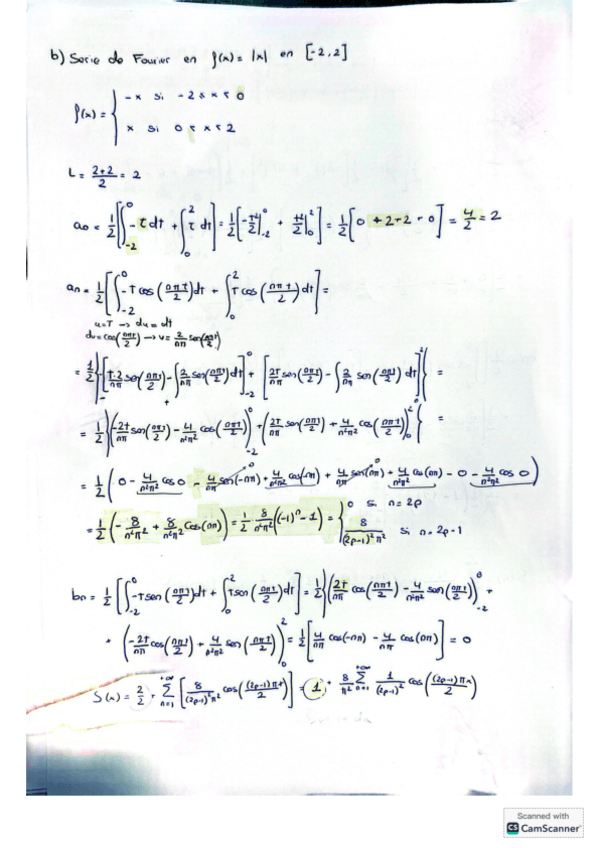 b) Serie de Fourier en f(x) = |x| en [-2,2]
f(x) = { -x si -2 ≤ x < 0
x si 0 ≤ x ≤ 2
L = (2+2)/2 = 2
a0 = 1/2 [∫_{-2}^{0} -t dt + ∫_{0}^{2} t dt] = 1/2 [-t²/2 |_{-2}^{0} + t²/2 |_{0}^{2}] = 1/2 [0 + 2 + 2 - 0] = 4/2 = 2
an = 1/2 [∫_{-2}^{0} -t cos(nπt/2) dt + ∫_{0}^{2} t cos(nπt/2) dt] =
u = t → du = dt
dv = cos(nπt/2) → v = 2/nπ sen(nπt/2)
= 1/2 {-[t·2/nπ sen(nπt/2) - ∫ 2/nπ sen(nπt/2) dt]_{-2}^{0} + [2t/nπ sen(nπt/2) - ∫ 2/nπ sen(nπt/2) dt]_{0}^{2}} =
= 1/2 {(-2t/nπ sen(nπt/2) - 4/n²π² cos(nπt/2))_{-2}^{0} + (2t/nπ sen(nπt/2) + 4/n²π² cos(nπt/2))_{0}^{2}} =
= 1/2 (0 - 4/n²π² cos 0 - 4/nπ sen(-nπ) + 4/n²π² cos(-nπ) + 4/nπ sen(nπ) + 4/n²π² cos(nπ) - 0 - 4/n²π² cos 0)
= 1/2 (-8/n²π² + 8/n²π² cos(nπ)) = 1/2 · 8/n²π² ((-1)^n - 1) = { 0 si n = 2p
8/(2p-1)²π² si n = 2p-1
bn = 1/2 [∫_{-2}^{0} -t sen(nπt/2) dt + ∫_{0}^{2} t sen(nπt/2) dt] = 1/2 {(2t/nπ cos(nπt/2) - 4/n²π² sen(nπt/2))_{-2}^{0} +
+ (-2t/nπ cos(nπt/2) + 4/n²π² sen(nπt/2))_{0}^{2} = 1/2 [4/nπ cos(-nπ) - 4/nπ cos(nπ)] = 0
S(x) = 2/2 + Σ_{n=1}^{+∞} [8/(2p-1)²π² cos((2p-1)πt/2)] = 1 + 8/π² Σ_{n=1}^{+∞} 1/(2p-1)² cos((2p-1)πx/2)
Scanned with
CS CamScanner